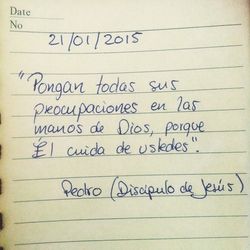 Date
No
21/01/2015
"Pongan todas sus
preocupaciones en las
manos de Dios, porque
Él cuida de ustedes".
Pedro (Discípulo de Jesús)